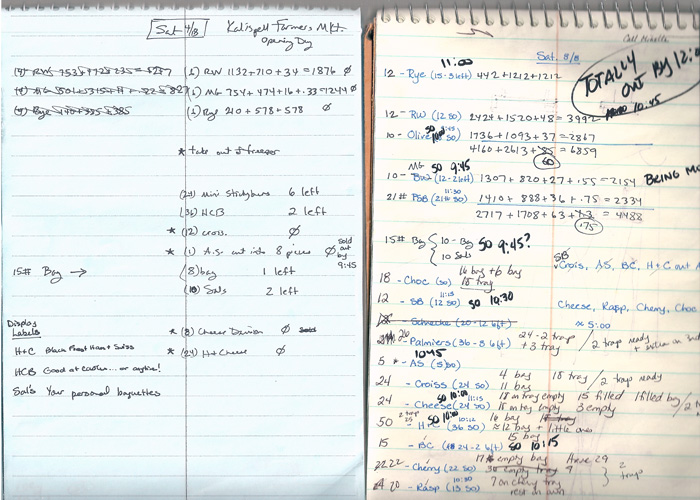 Sat 4/8
Kalispell Farmers Mkt.
Opening Day
(1) RW 1132+710+34=1876 Ø
(1) MG 754+474+16+.33=1244 Ø
(1) Rye 210+578+578 Ø
* take out of freezer
(24) Mini Stickybuns 6 left
(36) HCB 2 left
* (12) crois. Ø
* (1) A.S. cut into 8 pieces Ø sold out by 9:45
15# Bag → (8) bag 1 left
(10) Sals 2 left
Display Labels
* (8) Cheese Danish Ø
H+C Black Forest Ham + Swiss
* (24) H+Cheese Ø
HCB Good at clarion... or anytime!
Sal's Your personal baguettes
Call Michelle
11:00
Sat. 5/8
12 - Rye (15-3 left) 442+1212+1212
TOTALLY OUT BY 12:0
10:45
12 - RW (12 SO) 2424+1520+48=3992
10 - Olive SO 1736+1093+37=2867
4160+2613+85=6859
60
MG SO 9:45
10 - (12-2 left) 1307+820+27+.55=2154
BRING MO
11:30
21# PSB (21 SO) 1410+888+36+.75=2334
2717+1708+63+1.3=4488
.75
15# Bag 10 - Bag SO 9:45?
10 Sals
SB
Crois, AS, BC, H+C out
16 bag +6 bag
18 - Choc (SO) 18 tray
11:15
12 - SB (12 SO) SO 10:30
Cheese, Rasp, Cherry, Choc
≈ 5:00
Palmiers (36-8 left) 24-2 trap + 3 tray / 2 trap ready
10:45
5 * - AS (5 SO)
4 bag 18 tray / 2 trap ready
24 - Croiss (24 SO) 11 bag
SO 10:00 11:15
24 - Cheese (24 SO) 18 in tray empty 15 filled 1 filled by
18 in tray empty 3 empty
SO 10:00 10:12
50 - H C (36 SO) 16 bag
≈12 bag + little ones
15 bag
15 - BC (24-2 left) SO 10:15
22 - Cherry (22 SO) 17 empty bag have 29
empty tray 9 2 trap
10:30
20 - Rasp (15 SO) 7 on cherry tray
rest on own